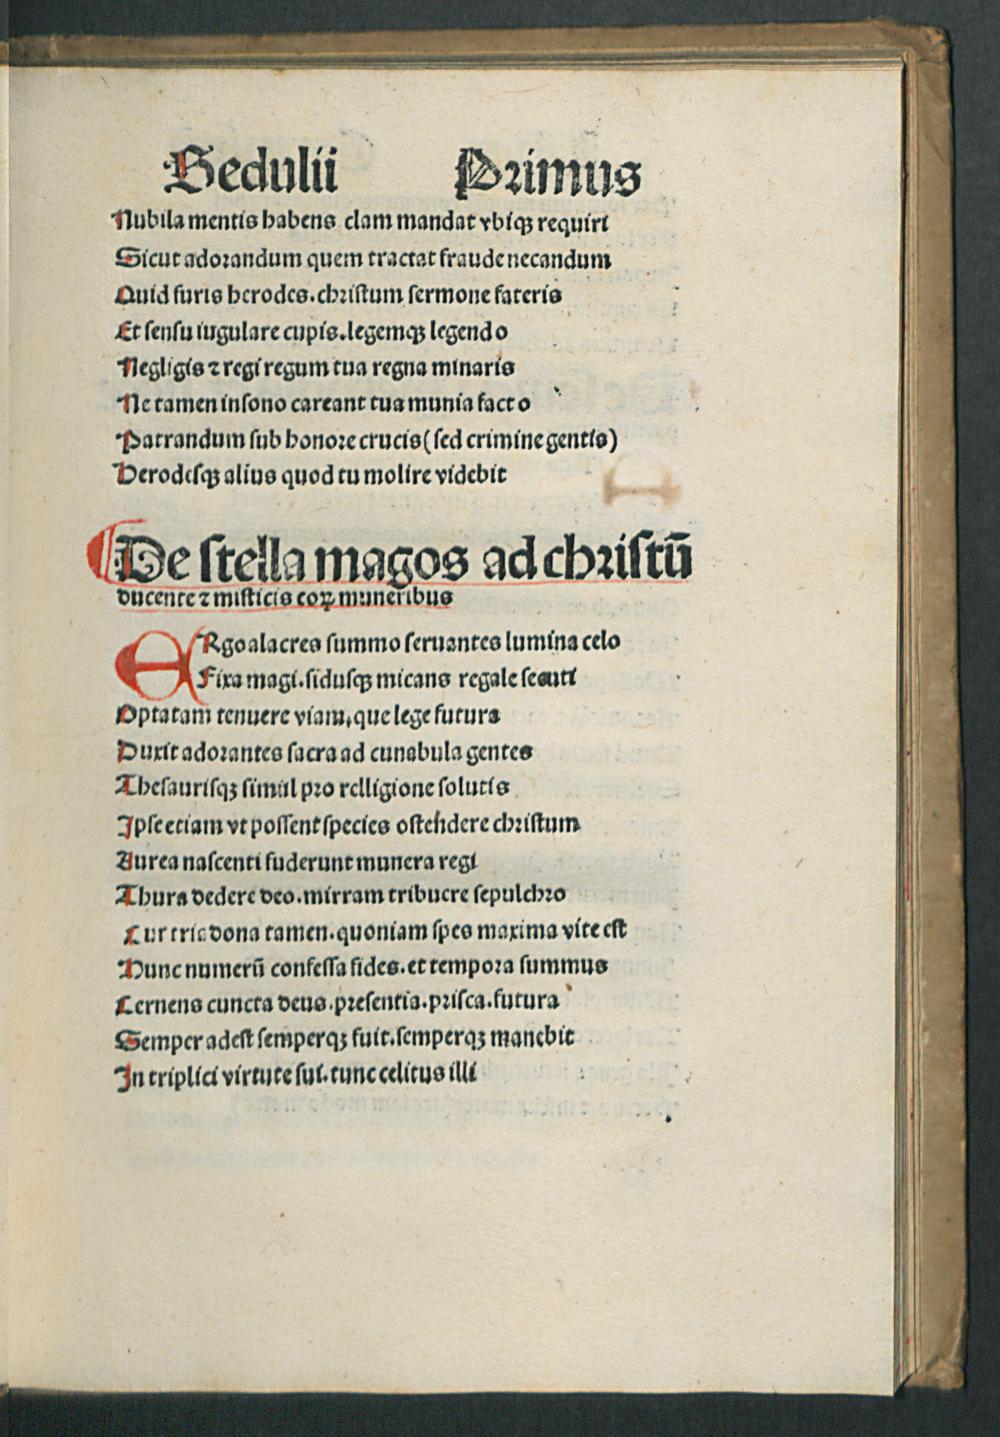 Sedulii Primus
Nubila mentis habens clam mandat vbiqꝫ requiri
Sicut adorandum quem tractat fraude necandum
Quid furis herodes. christum sermone fateris
Et sensu iugulare cupis. legemqꝫ legendo
Negligis ⁊ regi regum tua regna minaris
Ne tamen insono careant tua munia facto
Patrandum sub honore crucis (sed crimine gentis)
Herodesqꝫ alius quod tu molire videbit
De stella magos ad christū
ducente ⁊ misticis eoꝝ muneribus
ERgo alacres summo seruantes lumina celo
Fixa magi. sidusqꝫ micans regale secuti
Optatam tenuere viam, que lege futura
Duxit adorantes sacra ad cunabula gentes
Thesaurisqꝫ simul pro relligione solutis
Ipse etiam vt possent species ostendere christum
Aurea nascenti fuderunt munera regi
Thura dedere deo. mirram tribuere sepulchro
Cur tria dona tamen. quoniam spes maxima vite est
Hunc numerū confessa fides. et tempora summus
Cernens cuncta deus. presentia. prisca. futura
Semper adest semperqꝫ fuit. semperqꝫ manebit
In triplici virtute sui. tunc celitus illi